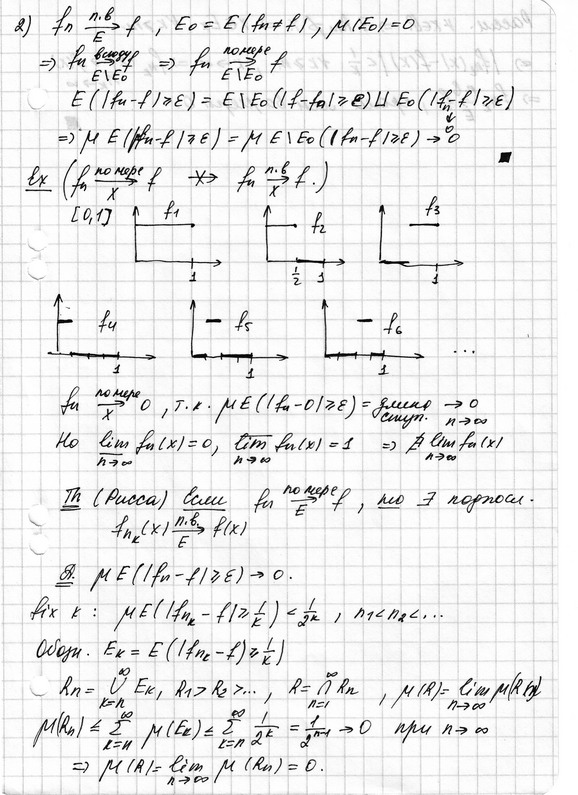 2) fn п.в→E f, E₀ = E(fn ≠ f), μ(E₀) = 0
⇒ fn всюду→E\E₀ f ⇒ fn по мере→E\E₀ f
E(|fn-f| ≥ ε) = E\E₀(|f-fn| ≥ ε) ⊔ E₀(|fn-f| ≥ ε)
⇒ μE(|fn-f| ≥ ε) = μE\E₀(|fn-f| ≥ ε) → 0
Ex (fn по мере→X f ⇏ fn п.в→X f.)
[0,1] f₁ f₂ f₃
1 1/2 1 1
f₄ f₅ f₆
1 1 1 ...
fn по мере→X 0, т.к. μE(|fn-0| ≥ ε) = длина ступ. → 0 n→∞
Но lim n→∞ fn(x) = 0, lim n→∞ fn(x) = 1 ⇒ ∄ lim n→∞ fn(x)
Th (Рисса) Если fn по мере→E f, то ∃ подпосл.
fnₖ(x) п.в.→E f(x)
Д. μE(|fn-f| ≥ ε) → 0.
fix k: μE(|fnₖ-f| ≥ 1/k) < 1/2ᵏ, n₁<n₂<...
Обозн. Eₖ = E(|fnₖ-f| ≥ 1/k)
Rn = ∪ k=n ∞ Eₖ, R₁ > R₂ > ..., R = ∩ n=1 ∞ Rn, μ(R) = lim n→∞ μ(Rn)
μ(Rn) ≤ Σ k=n ∞ μ(Eₖ) ≤ Σ k=n ∞ 1/2ᵏ = 1/2ⁿ⁻¹ → 0 при n→∞
⇒ μ(R) = lim n→∞ μ(Rn) = 0.